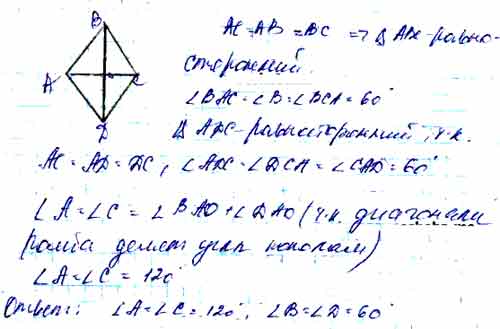 B
A
C
D
AC = AB = BC => Δ ABC - равно-
сторонний.
∠BAC = ∠B = ∠BCA = 60°
Δ ADC - равносторонний, т.к.
AC = AD = DC, ∠ADC = ∠DCA = ∠CAD = 60°
∠A = ∠C = ∠BAO + ∠DAO (т.к. диагонали
ромба делят углы пополам)
∠A = ∠C = 120°
Ответ: ∠A = ∠C = 120°, ∠B = ∠D = 60°